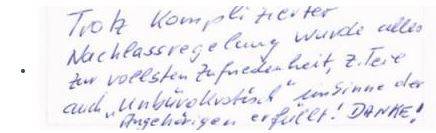 Trotz komplizierter
Nachlassregelung wurde alles
zur vollsten Zufriedenheit, z. Teil
auch „Unbürokratisch" im Sinne der
Angehörigen erfüllt! DANKE!